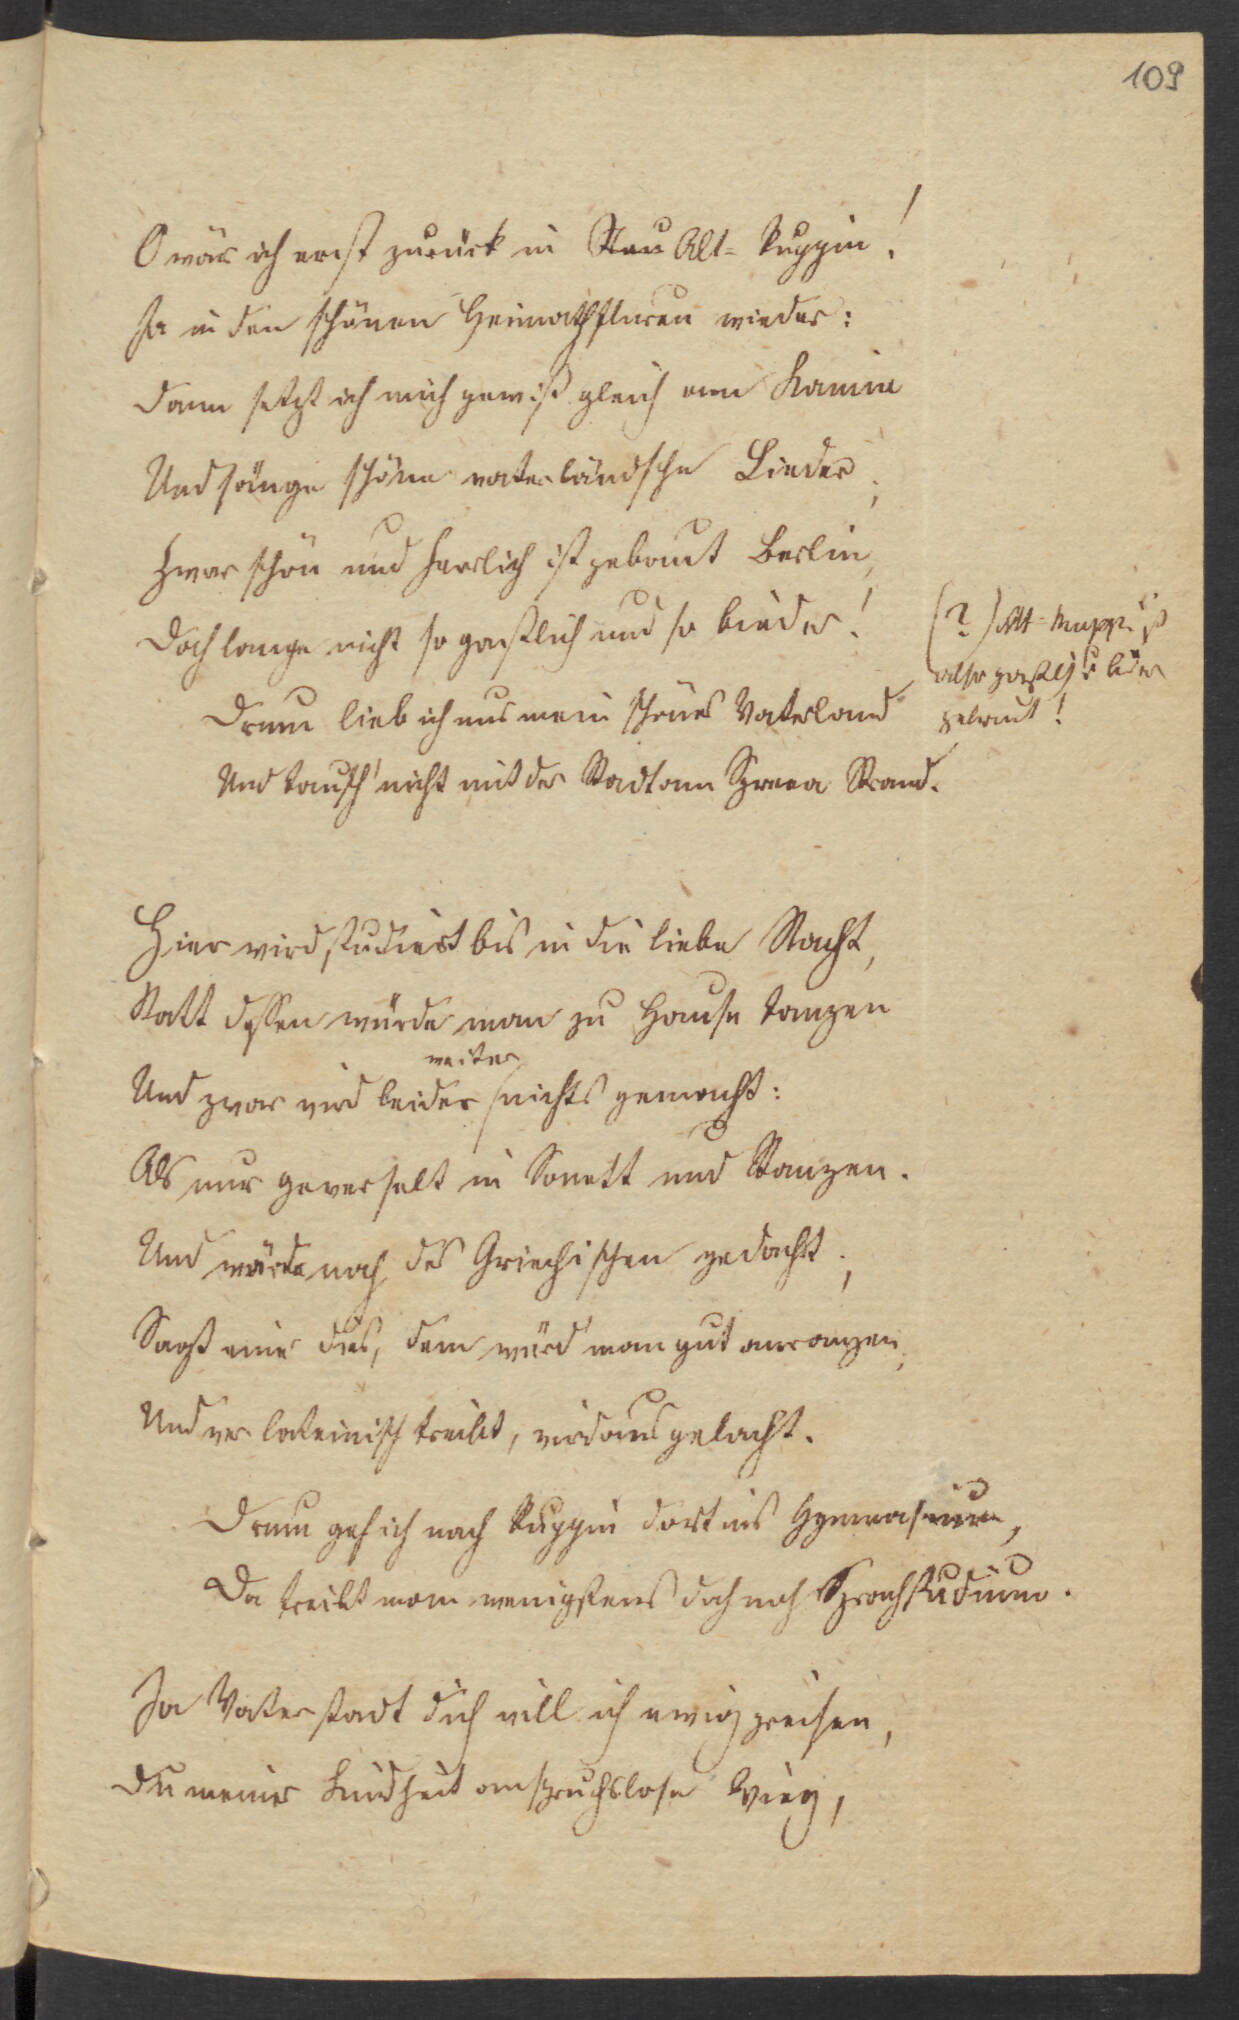 109
O wär ich erst zurück in Neu Alt-Ruppin!
Ja in den schönen Heimathfluren wieder:
Dann setzt ich mich gewiß gleich am Kamin
Und sänge schöne vaterländsche Lieder;
Zwar schön und herrlich ist gebaut Berlin,
Doch lange nicht so gastlich und so bieder!
Drum lieb ich nur mein schönes Vaterland
Und tausch' nicht mit der Stadt am Spreea Strand.
(?) Alt-Rupp. ist
also gastlich u bieder
gebaut!
Hier wird studiert bis in die liebe Nacht,
Statt dessen würde man zu Hause tanzen
weiter
Und zwar wird leider nichts gemacht:
Als nur geverselt in Sonett und Stanzen.
Und würde noch des Griechischen gedacht;
Sagt einer dies, dem würd man gut anranzen,
Und wer lateinisch treibt, wird ausgelacht.
Drum geh ich nach Ruppin dort ins Gymnasium,
Da treibt man wenigstens doch noch Sprachstudium.
Ja Vaterstadt dich will ich ewig preisen,
Du meiner Kindheit anspruchslose Wieg,